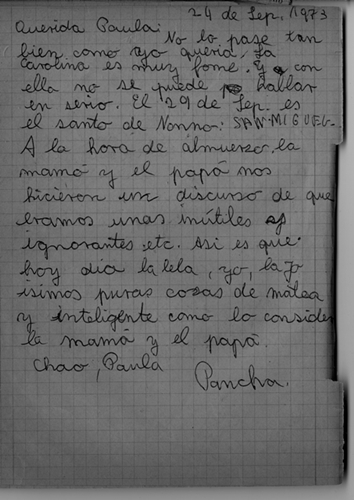 24 de Sep. 1973
Querida Paula:
No lo pase tan
bien como yo quería. La
Carolina es muy fome. Y con
ella no se puede hablar
en serio. El 29 de Sep. es
el santo de Nonno: SAN MIGUEL
A la hora de almuerzo, la
mamá y el papá nos
hicieron un discurso de que
eramos unas inútiles y
ignorantes, etc. Asi es que
hoy dia la lela, yo, la Jo
isimos puras cosas de matea
y inteligente como lo consider
la mamá y el papá.
Chao, Paula
Pancha.